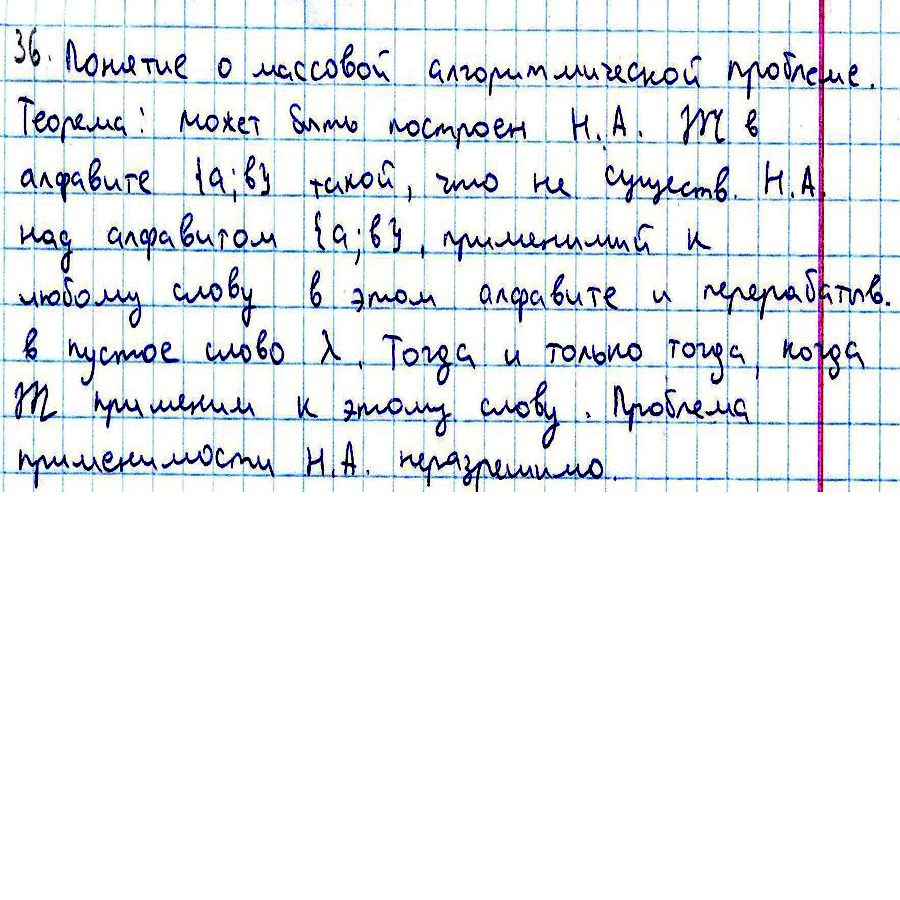 36. Понятие о массовой алгоритмической проблеме.
Теорема: может быть построен Н.А. 𝔐 в
алфавите {a;b} такой, что не существ. Н.А.
над алфавитом {a;b}, применимий к
любому слову в этом алфавите и перерабатыв.
в пустое слово λ. Тогда и только тогда, когда
𝔐 применим к этому слову. Проблема
применимости Н.А. неразрешимо.